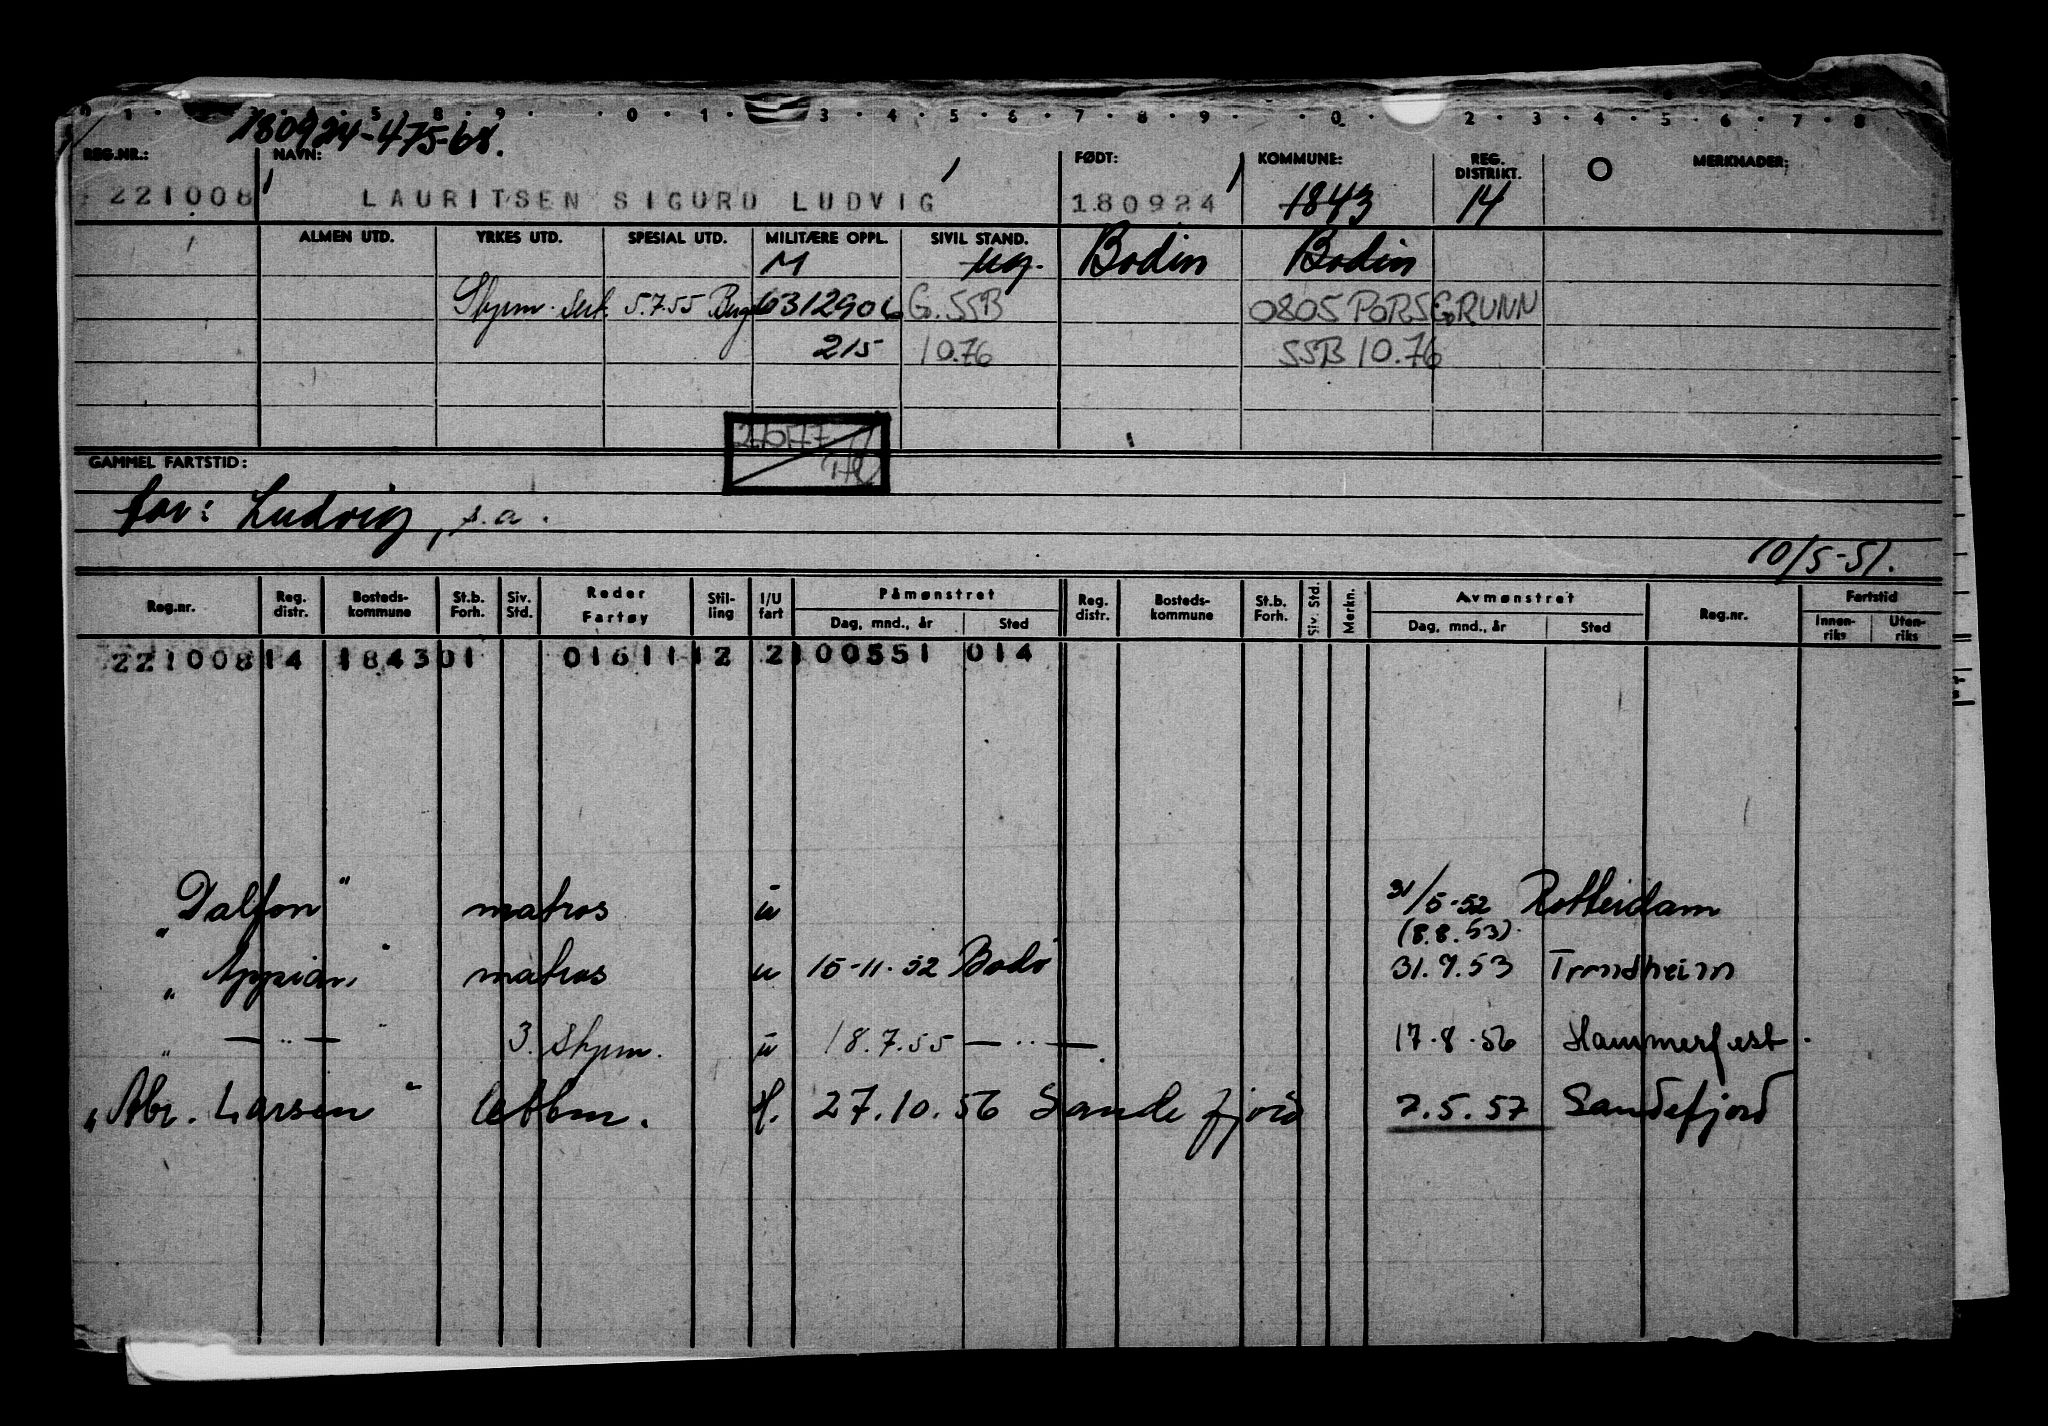 0 1 . . . 5 . 8 . 9 . . 0 . 1 . . 3 . 4 . 5 . 6 . 7 . 8 . 9 . . 0 . . 2 . 3 . 4 . 5 . 6 . 7 . 8
180924-475-68.
REG.NR.: NAVN: FØDT: KOMMUNE: REG. DISTRIKT. O MERKNADER:
221008 LAURITSEN SIGURD LUDVIG 180924 1843 14
ALMEN UTD. YRKES UTD. SPESIAL UTD. MILITÆRE OPPL. SIVIL STAND. Bodin Bodin
M ug.
Skpm. Sert. 5.7.55 0312906 G. SSB 0805 PORSGRUNN
215 10.76 SSB 10.76
GAMMEL FARTSTID:
far: Ludvig, s.a.
10/5-51.
Reg.nr. Reg. distr. Bosteds-kommune St.b. Forh. Siv. Std. Reder Fartøy Stil-ling I/U fart Påmønstret Dag, mnd., år Sted Reg. distr. Bosteds-kommune St.b. Forh. Siv. Std. Merkn. Avmønstret Dag, mnd., år Sted Reg.nr. Fartstid Innen-riks Uten-riks
221008 14 1843 01 01611 12 2 100551 014
"Dalfon" matros u 31/5-52 Rotterdam
(8.8.53).
"Appian" matros u 15-11-52 Bodø 31.7.53 Trondheim
" — ·· — " 3. Skpm. u 18.7.55 — ·· — 17.8.56 Hammerfest.
"Abr. Larsen" lettbm. H. 27.10.56 Sandefjord 7.5.57 Sandefjord